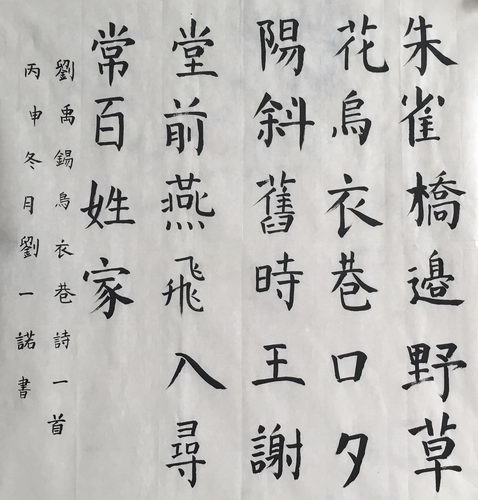 朱雀橋邊野草
花烏衣巷口夕
陽斜舊時王謝
堂前燕飛入尋
常百姓家
劉禹錫烏衣巷詩一首
丙申冬月劉一諾書